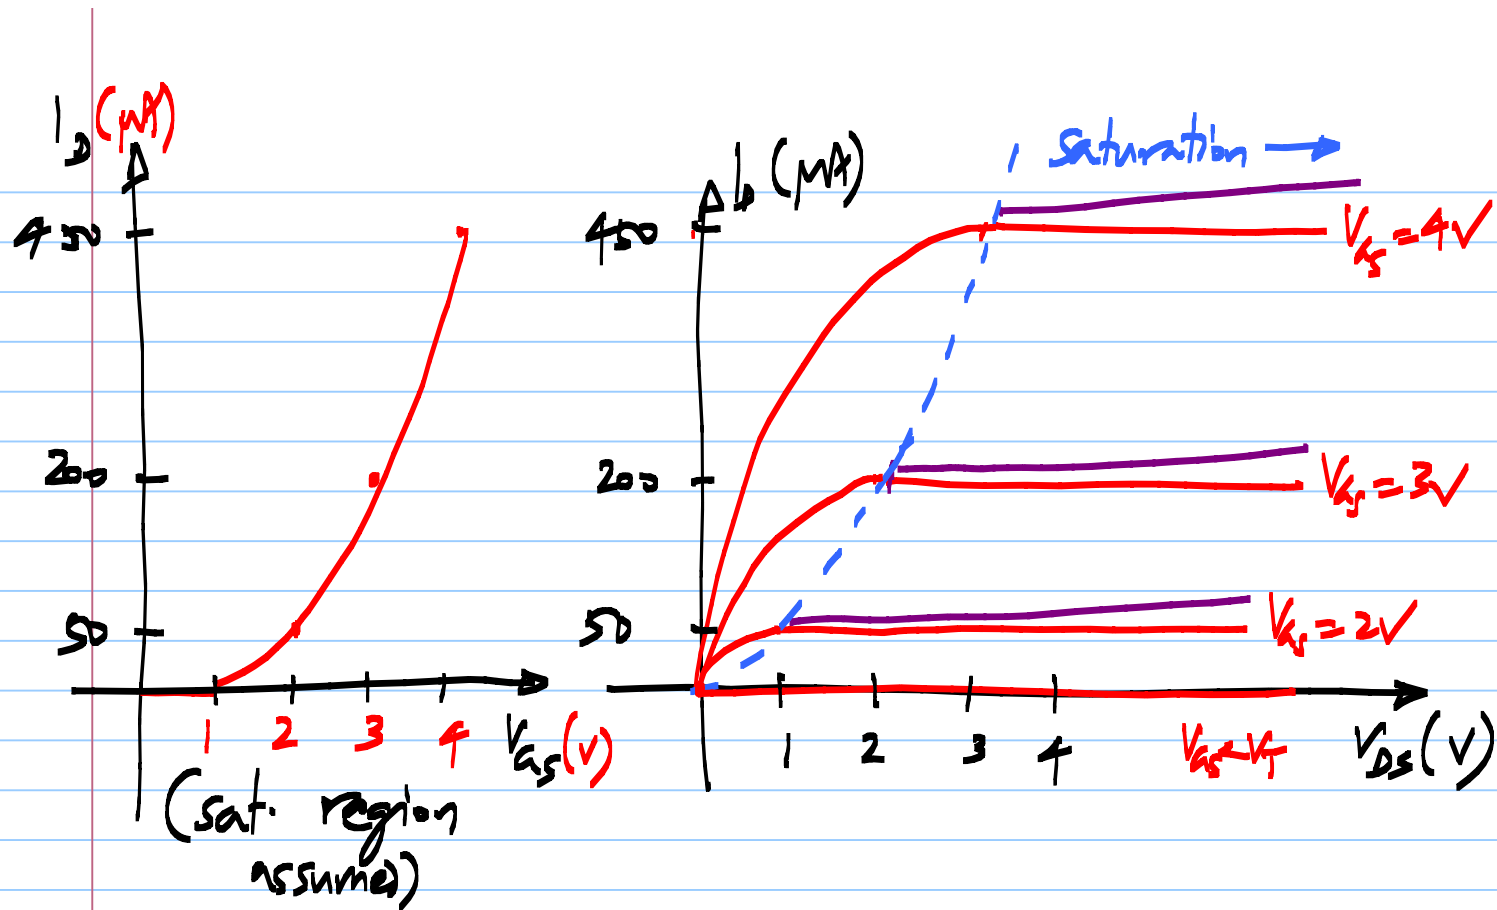 I_D (μA)
450
200
50
1 2 3 4 V_GS (V)
(sat. region
assumed)
I_D (μA)
saturation →
450
V_GS = 4V
200
V_GS = 3V
50
V_GS = 2V
1 2 3 4 V_GS < V_T V_DS (V)